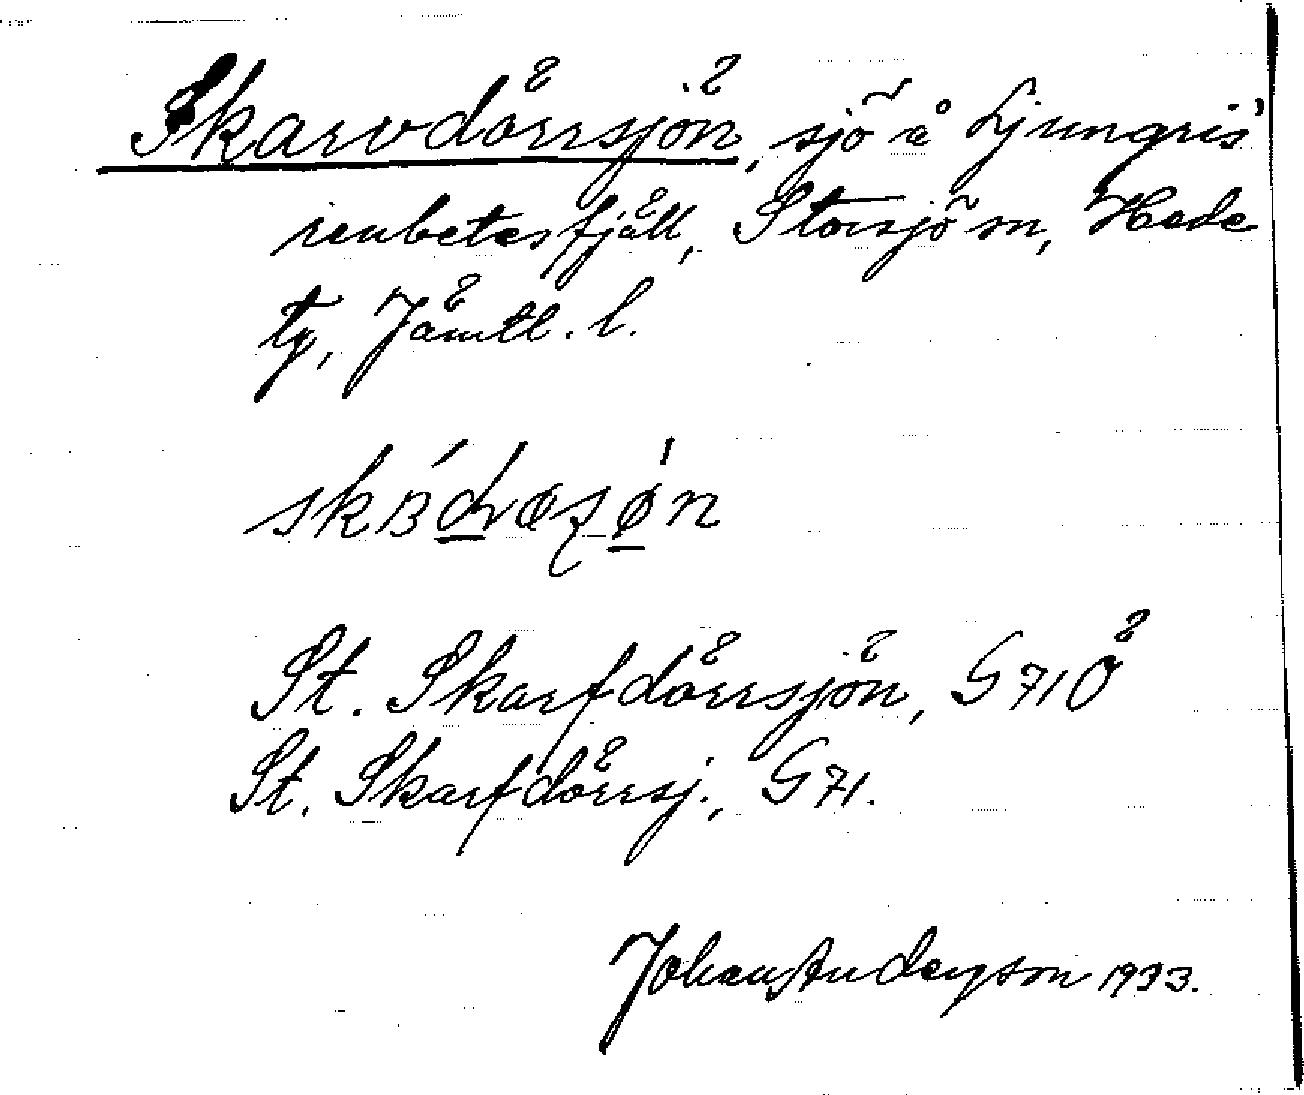 Skarvdörrsjön, sjö å Ljungris
renbetesfjäll, Storsjö sn, Hede
tg, Jämtl. l.
St. Skarfdörrsjön, G71Ö
St. Skarfdörrsj., G71.
Johan Anderson 1933.